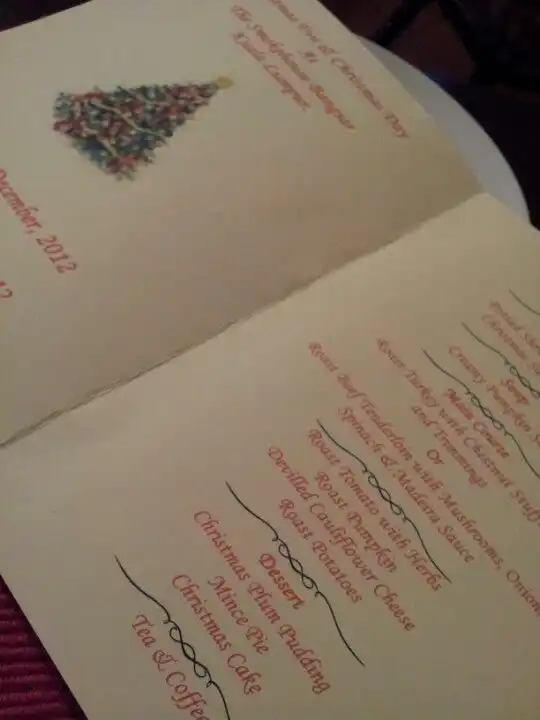 Eve & Christmas Day
At
The Smokehouse Banquet
Lounge.
December, 2012
Christmas
Soup
Creamy Pumpkin
Main Course
Roast Turkey with Chestnut
and Trimmings
Or
Roast Beef Tenderloin with Mushrooms,
Spinach & Madeira Sauce
Roast Tomato with Herbs
Roast Pumpkin
Devilled Cauliflower Cheese
Roast Potatoes
Dessert
Christmas Plum Pudding
Mince Pie
Christmas Cake
Tea & Coffee